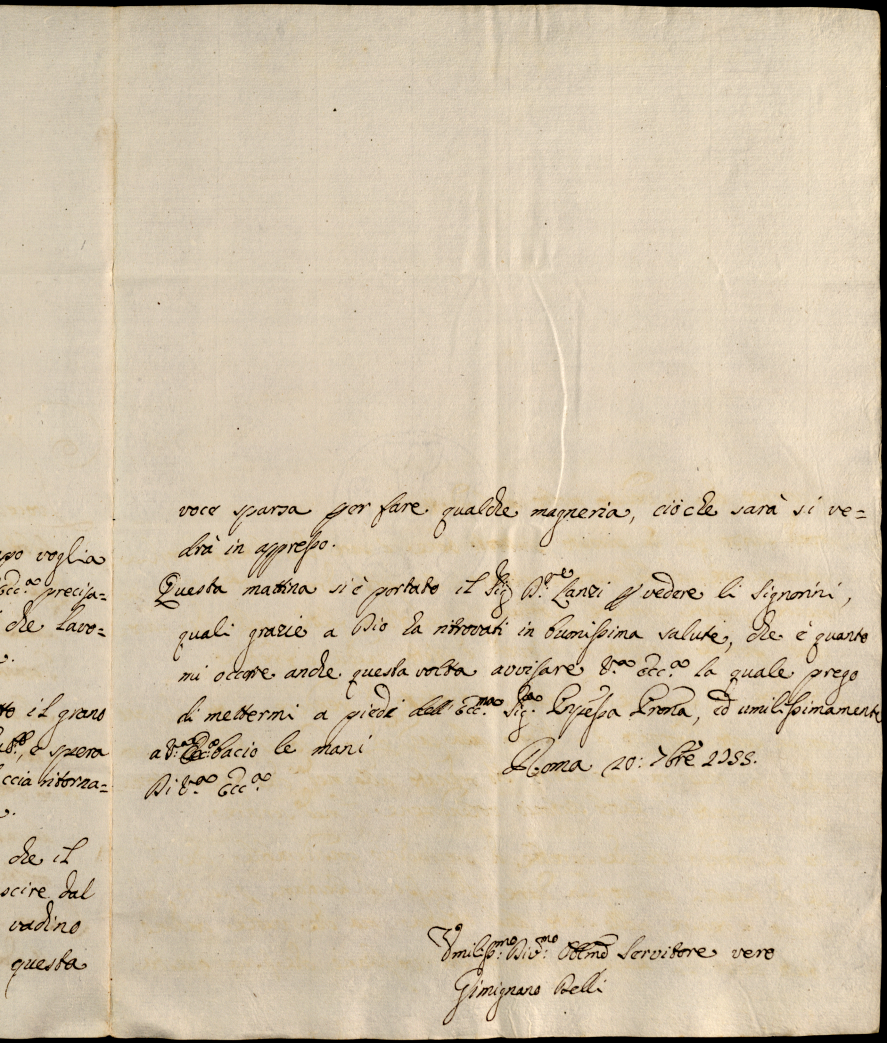 po voglia
Ecc.ᵃ precisa=
che Lavo=
to il grano
e spera
ccia ritorna=
che il
scire dal
vadino
questa
voce sparsa per fare qualche magneria, ciò che sarà si ve=
drà in appresso.
Questa mattina si è portato il Sig D.ʳᵉ Lanzi p vedere li Signorini,
quali grazie a Dio ha ritrovati in buonissima salute, che è quanto
mi occore anche questa volta avvisare V.ᵃ Ecc.ᵃ la quale prego
di mettermi a piedi dell' Ecc.ᵐᵃ Sig.ʳᵃ Pnpessa Prona, ed umilissimamente
a V.ᵃ Ecc.ᵃ bacio le mani
Di V.ᵃ Ecc.ᵃ
Roma 20: 7bre 1755.
Umiliss.ᵐᵒ Div.ᵐᵒ Obbmo Servitore vero
Gimignano Belli